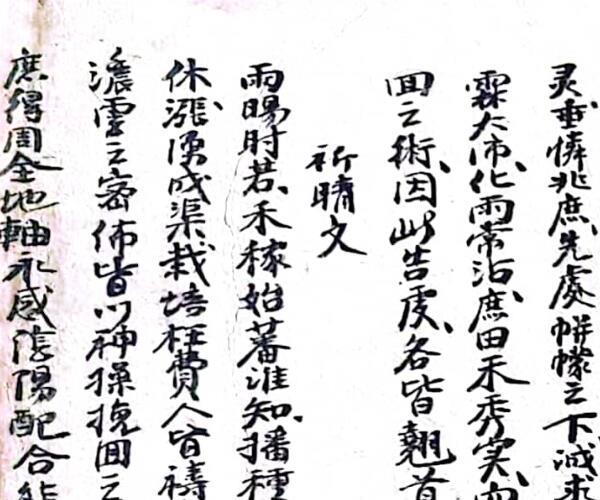 灵垂憐兆庶先處帡幪之下诚求
霖大沛化雨常沾庶田禾秀实
囬之術因此告虔各皆翹首
祈晴文
雨暘时若禾稼始蕃淮知播種
休漲湧成渠栽培枉費人皆禱
濃雲之密佈皆以神操挽囬之
庶得周全地軸永感陰陽配合能